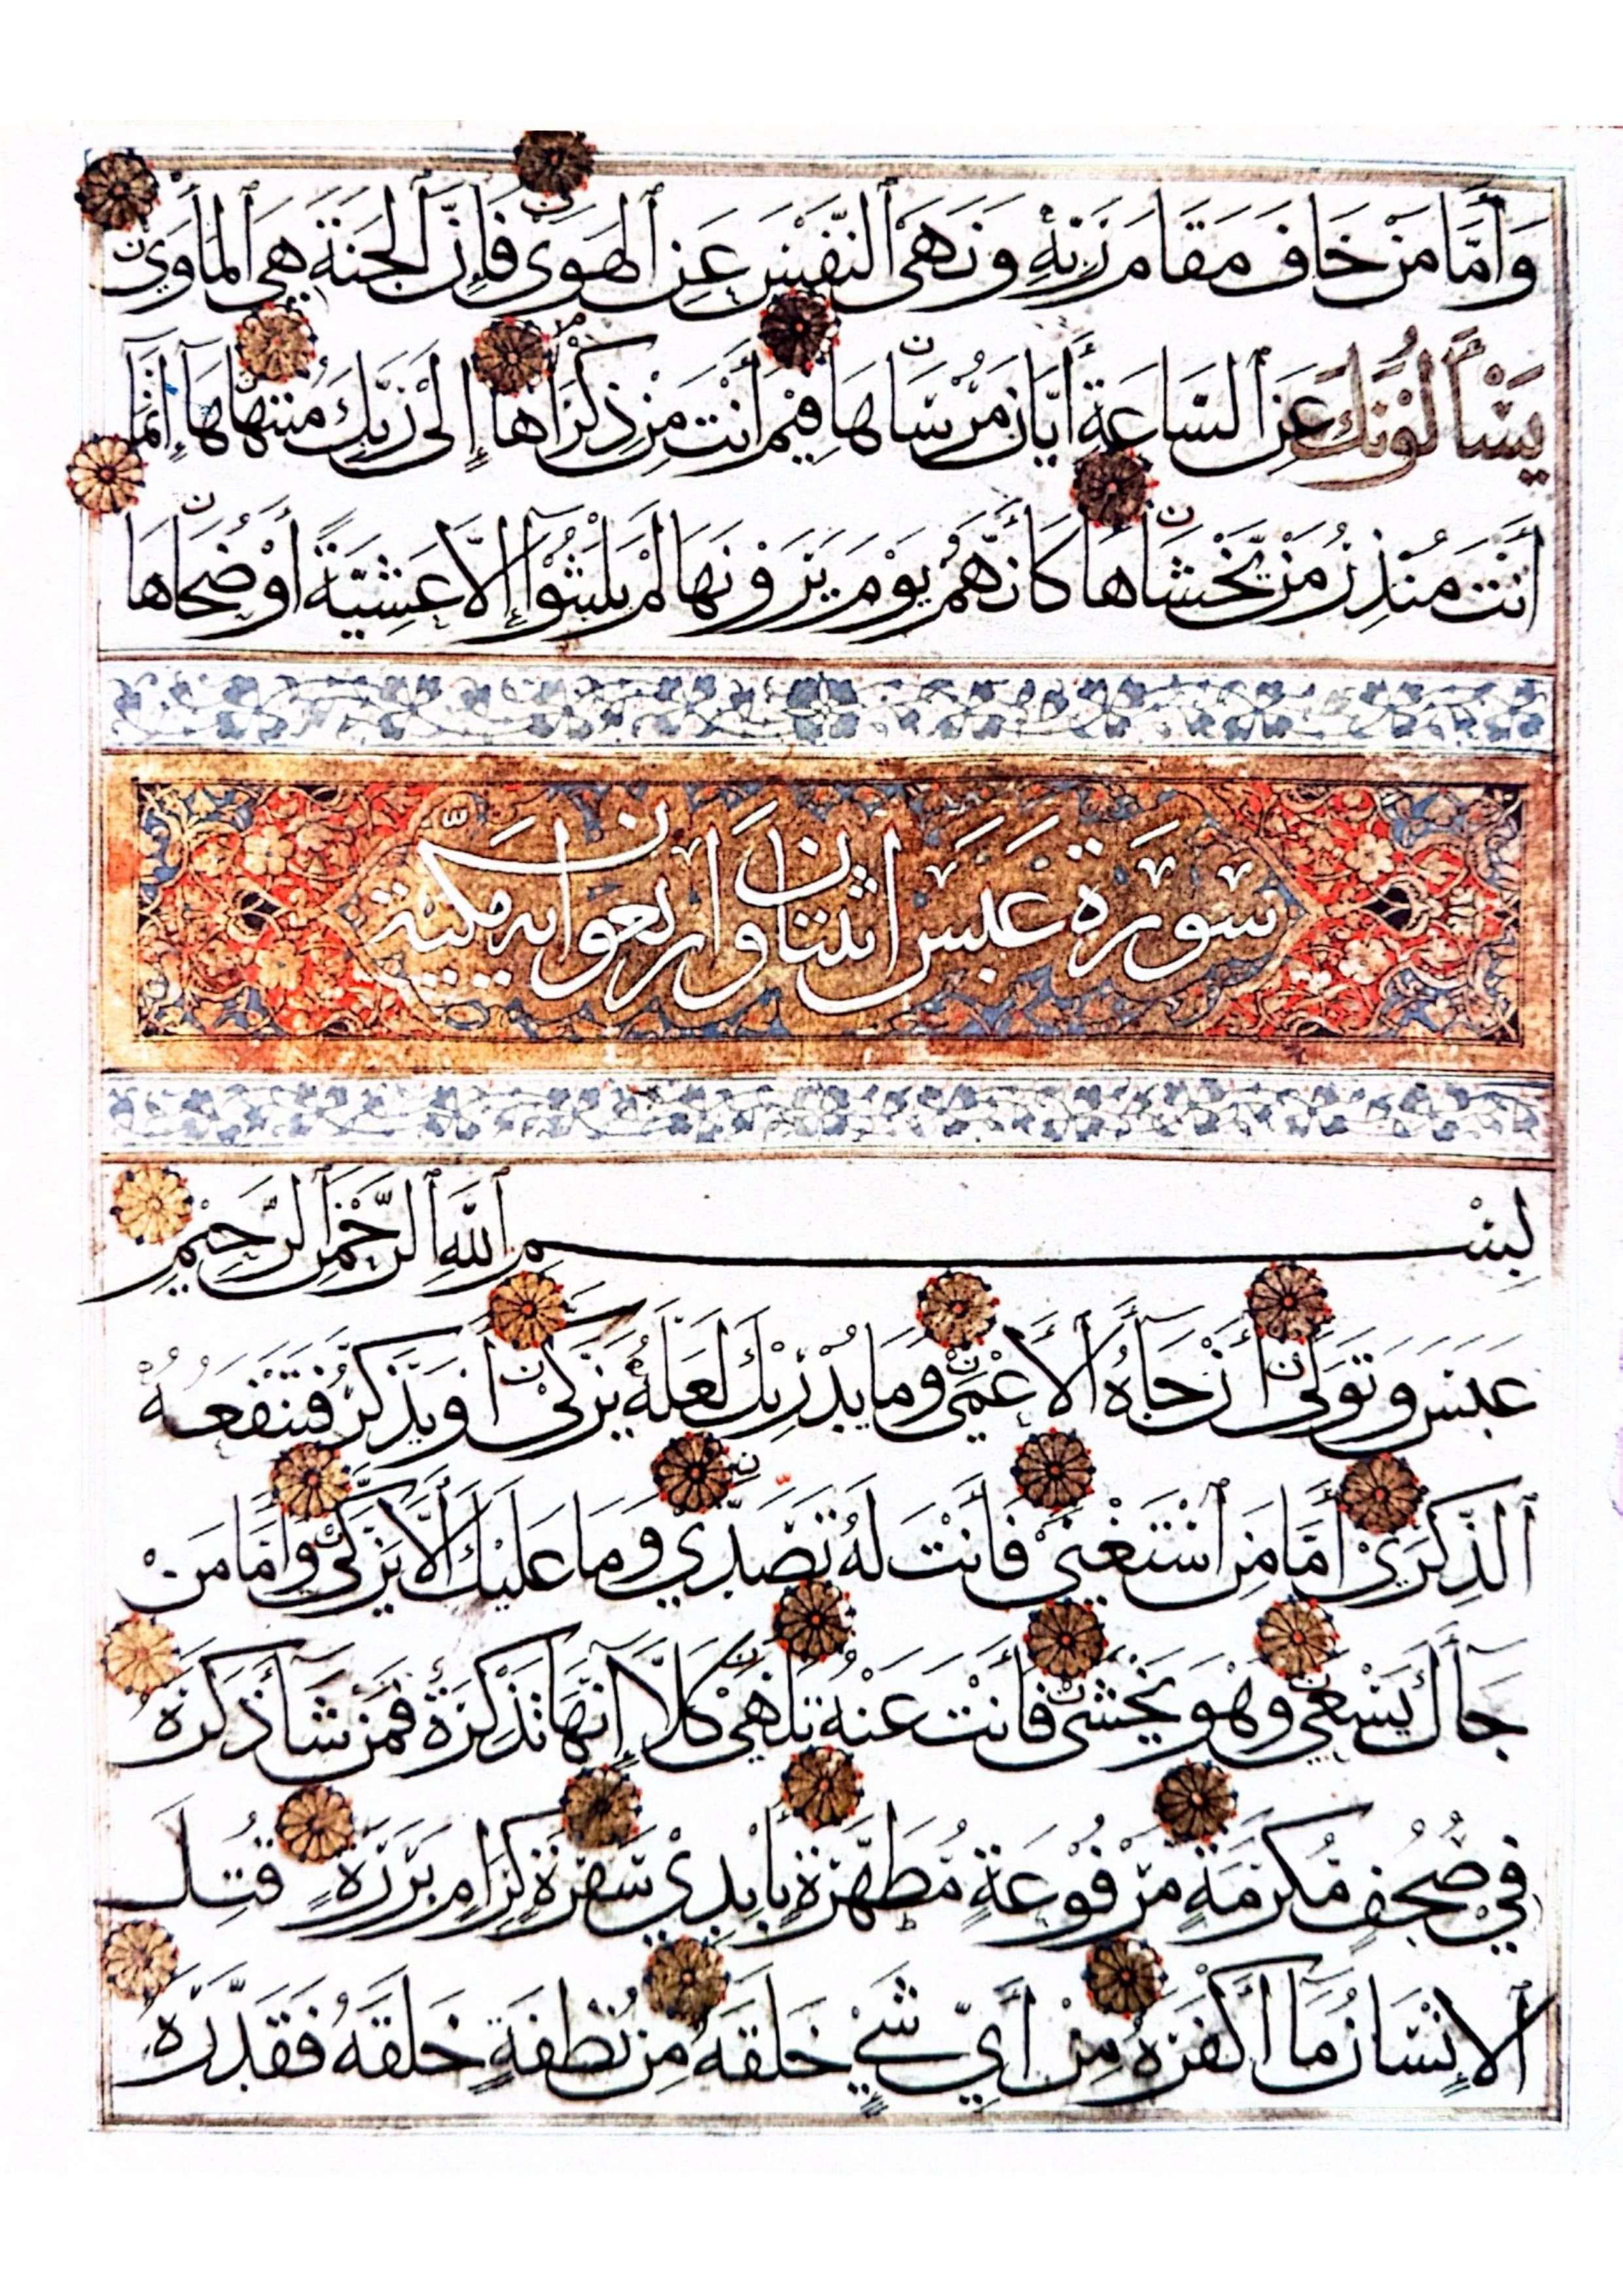 وَأَمَّا مَنْ خَافَ مَقَامَ رَبِّهِ وَنَهَى ٱلنَّفْسَ عَنِ ٱلْهَوَى فَإِنَّ ٱلْجَنَّةَ هِيَ ٱلْمَأْوَى
يَسْأَلُونَكَ عَنِ ٱلسَّاعَةِ أَيَّانَ مُرْسَاهَا فِيمَ أَنْتَ مِنْ ذِكْرَاهَا إِلَى رَبِّكَ مُنْتَهَاهَا إِنَّمَا
أَنْتَ مُنْذِرُ مَنْ يَخْشَاهَا كَأَنَّهُمْ يَوْمَ يَرَوْنَهَا لَمْ يَلْبَثُوا إِلَّا عَشِيَّةً أَوْ ضُحَاهَا
سورة عبس اثنتان واربعون اية مكية
بِسْمِ ٱللَّهِ ٱلرَّحْمَٰنِ ٱلرَّحِيمِ
عَبَسَ وَتَوَلَّى أَنْ جَآءَهُ ٱلْأَعْمَى وَمَا يُدْرِيكَ لَعَلَّهُ يَزَّكَّى أَوْ يَذَّكَّرُ فَتَنْفَعُهُ
ٱلذِّكْرَى أَمَّا مَنِ ٱسْتَغْنَى فَأَنْتَ لَهُ تَصَّدَّى وَمَا عَلَيْكَ أَلَّا يَزَّكَّى وَأَمَّا مَنْ
جَآءَكَ يَسْعَى وَهُوَ يَخْشَى فَأَنْتَ عَنْهُ تَلَهَّى كَلَّا إِنَّهَا تَذْكِرَةٌ فَمَنْ شَآءَ ذَكَرَهُ
فِي صُحُفٍ مُكَرَّمَةٍ مَرْفُوعَةٍ مُطَهَّرَةٍ بِأَيْدِي سَفَرَةٍ كِرَامٍ بَرَرَةٍ قُتِلَ
ٱلْإِنْسَانُ مَآ أَكْفَرَهُ مِنْ أَيِّ شَيْءٍ خَلَقَهُ مِنْ نُطْفَةٍ خَلَقَهُ فَقَدَّرَهُ